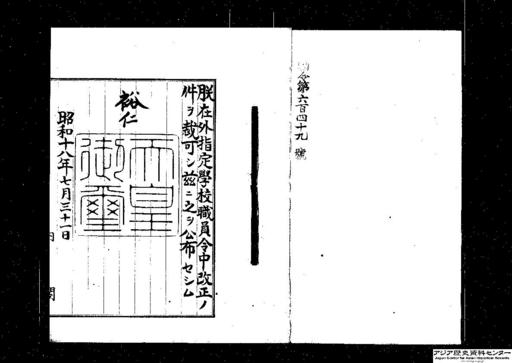 勅令第六百四十九號
朕在外指定學校職員令中改正ノ
件ヲ裁可シ茲ニ之ヲ公布セシム
裕仁
天皇
御璽
昭和十八年七月三十一日
内閣
アジア歴史資料センター
Japan Center for Asian Historical Records